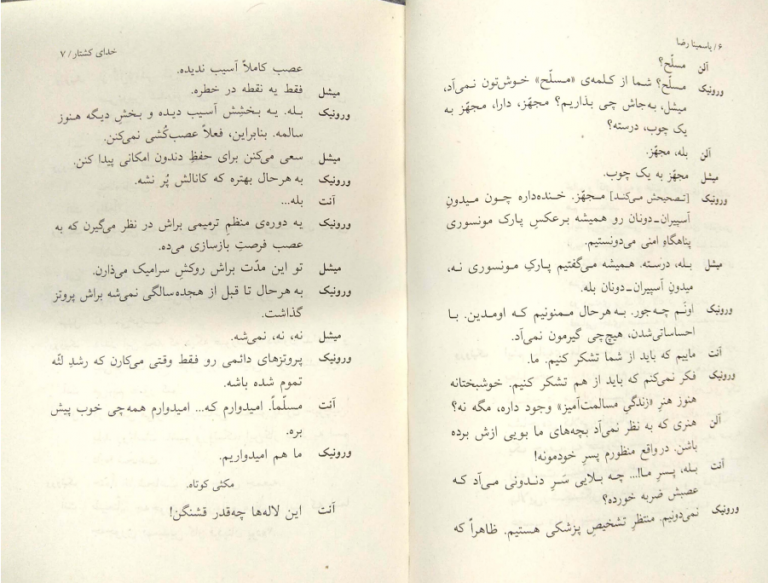 ۶ / یاسمینا رضا
آلن مسلّح؟
ورونیک مسلّح؟ شما از کلمه‌ی «مسلّح» خوش‌تون نمی‌آد،
میشل، به‌جاش چی بذاریم؟ مجهّز، دارا، مجهّز به
یک چوب، درسته؟
آلن بله، مجهّز.
میشل مجهّز به یک چوب.
ورونیک [تصحیحش می‌کند] مجهّز. خنده‌داره چون میدونِ
آسپیران-دونان رو همیشه برعکسِ پارک مونسوری
پناهگاهِ امنی می‌دونستیم.
میشل بله، درسته. همیشه می‌گفتیم پارکِ مونسوری نه،
میدونِ آسپیران-دونان بله.
ورونیک اونَم چه‌جور. به‌هرحال ممنونیم که اومدین. با
احساساتی‌شدن، هیچ‌چی گیرمون نمی‌آد.
آنت ماییم که باید از شما تشکر کنیم. ما.
ورونیک فکر نمی‌کنم که باید از هم تشکر کنیم. خوشبختانه
هنوز هنرِ «زندگیِ مسالمت‌آمیز» وجود داره، مگه نه؟
آلن هنری که به نظر نمی‌آد بچه‌های ما بویی ازش برده
باشن. درواقع منظورم پسرِ خودمونه!
آنت بله، پسرِ ما!... چه بلایی سَرِ دندونی می‌آد که
عصبش ضربه خورده؟
ورونیک نمی‌دونیم. منتظرِ تشخیصِ پزشکی هستیم. ظاهراً که
خدای کشتار / ۷
عصب کاملاً آسیب ندیده.
میشل فقط یه نقطه در خطره.
ورونیک بله. یه بخشِش آسیب دیده و بخشِ دیگه هنوز
سالمه. بنابراین، فعلاً عصب‌کُشی نمی‌کنن.
میشل سعی می‌کنن برای حفظِ دندون امکانی پیدا کنن.
ورونیک به هرحال بهتره که کانالش پُر نشه.
آنت بله...
ورونیک یه دوره‌ی منظمِ ترمیمی براش در نظر می‌گیرن که به
عصب فرصتِ بازسازی می‌ده.
میشل تو این مدّت براش روکشِ سرامیک می‌ذارن.
ورونیک به هرحال تا قبل از هجده‌سالگی نمی‌شه براش پروتز
گذاشت.
میشل نه، نه، نمی‌شه.
ورونیک پروتزهای دائمی رو فقط وقتی می‌کارن که رشدِ لثّه
تموم شده باشه.
آنت مسلّماً. امیدوارم که... امیدوارم همه‌چی خوب پیش
بره.
ورونیک ما هم امیدواریم.
مکثی کوتاه.
آنت این لاله‌ها چه‌قدر قشنگن!